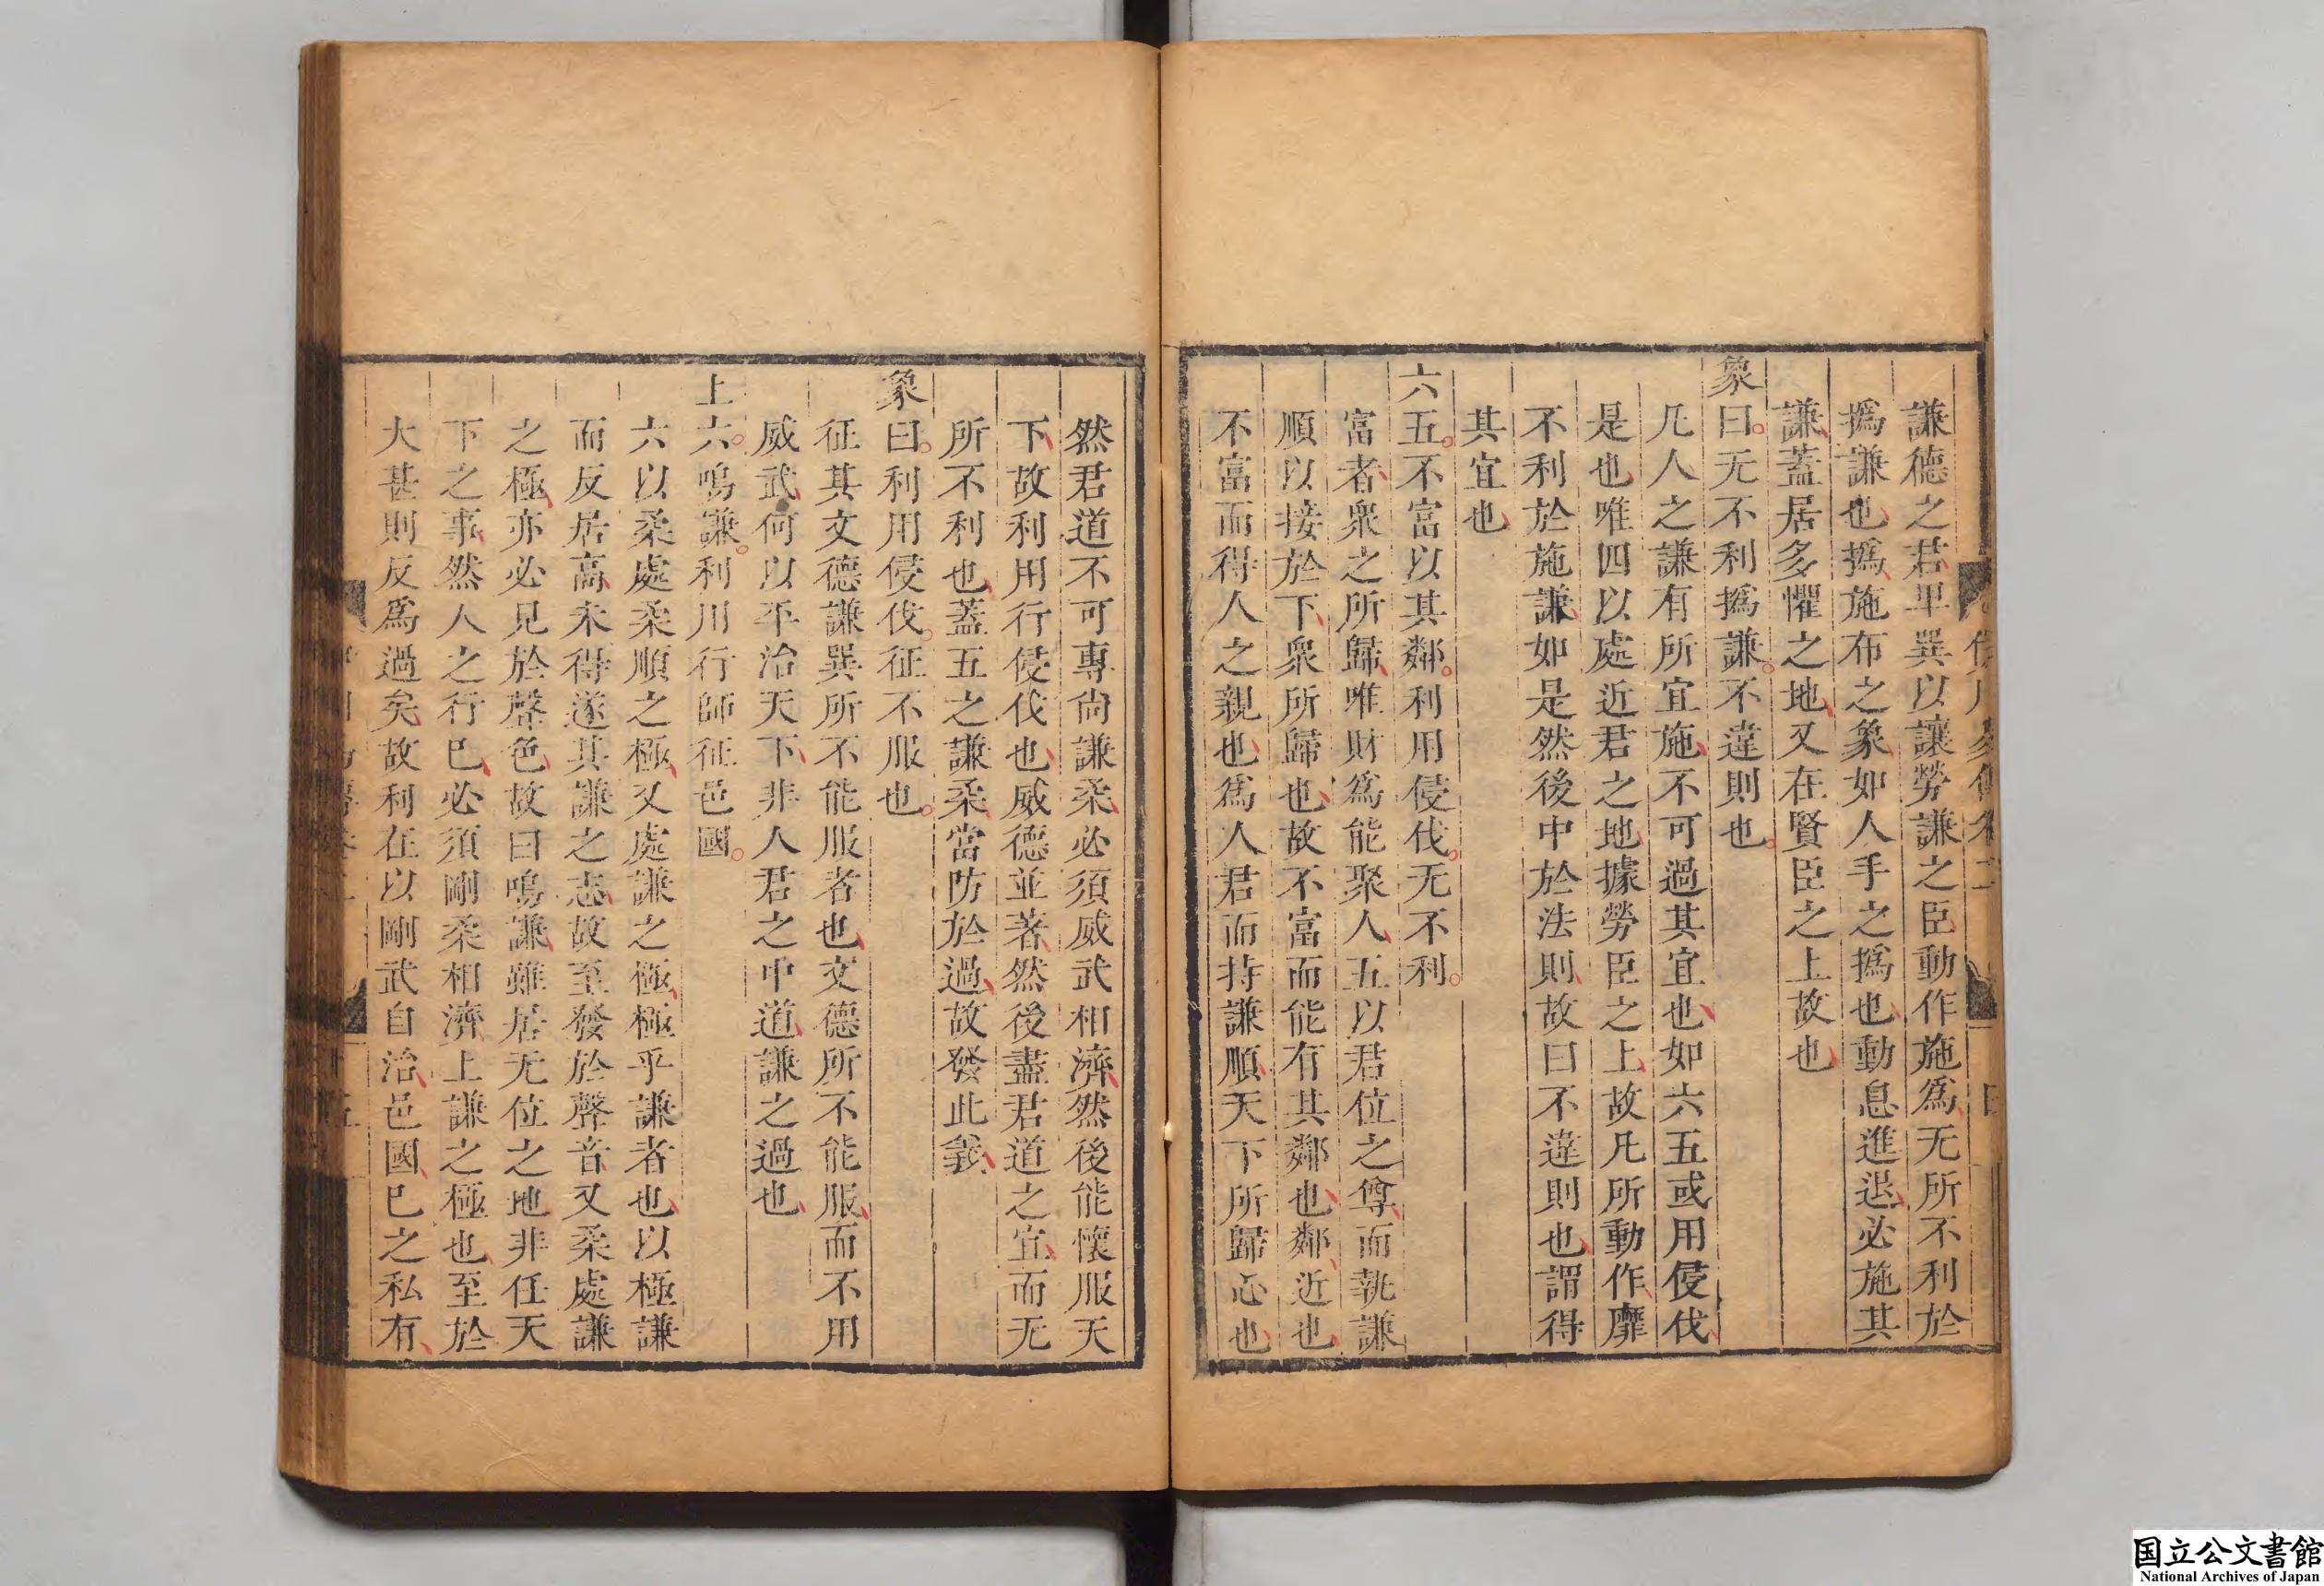 謙德之君卑巽以讓勞謙之臣動作施爲无所不利於
撝謙也撝施布之象如人手之撝也動息進退必施其
謙蓋居多懼之地又在賢臣之上故也
象曰无不利撝謙不違則也
凡人之謙有所宜施不可過其宜也如六五或用侵伐
是也唯四以處近君之地據勞臣之上故凡所動作靡
不利於施謙如是然後中於法則故曰不違則也謂得
其宜也
六五不富以其鄰利用侵伐无不利
富者衆之所歸唯財爲能聚人五以君位之尊而執謙
順以接於下衆所歸也故不富而能有其鄰也鄰近也
不富而得人之親也爲人君而持謙順天下所歸心也
然君道不可專尙謙柔必須威武相濟然後能懷服天
下故利用行侵伐也威德並著然後盡君道之宜而无
所不利也蓋五之謙柔當防於過故發此義
象曰利用侵伐征不服也
征其文德謙巽所不能服者也文德所不能服而不用
威武何以平治天下非人君之中道謙之過也
上六鳴謙利用行師征邑國
六以柔處柔順之極又處謙之極極乎謙者也以極謙
而反居高未得遂其謙之志故至發於聲音又柔處謙
之極亦必見於聲色故曰鳴謙雖居无位之地非任天
下之事然人之行已必須剛柔相濟上謙之極也至於
大甚則反爲過矣故利在以剛武自治邑國已之私有
国立公文書館
National Archives of Japan